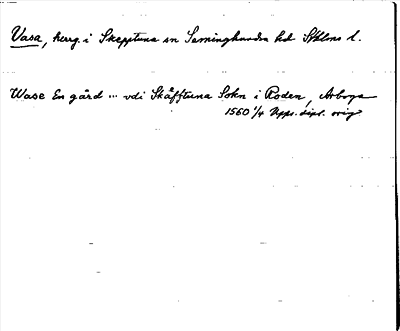 Vasa, herrg. i Skepptuna sn Seminghundra hd Sthlms l.
Wase En gård ... vdi Skäfftuna Sokn i Roden, Arboga
1560 1/4 Upps. dipl. orig